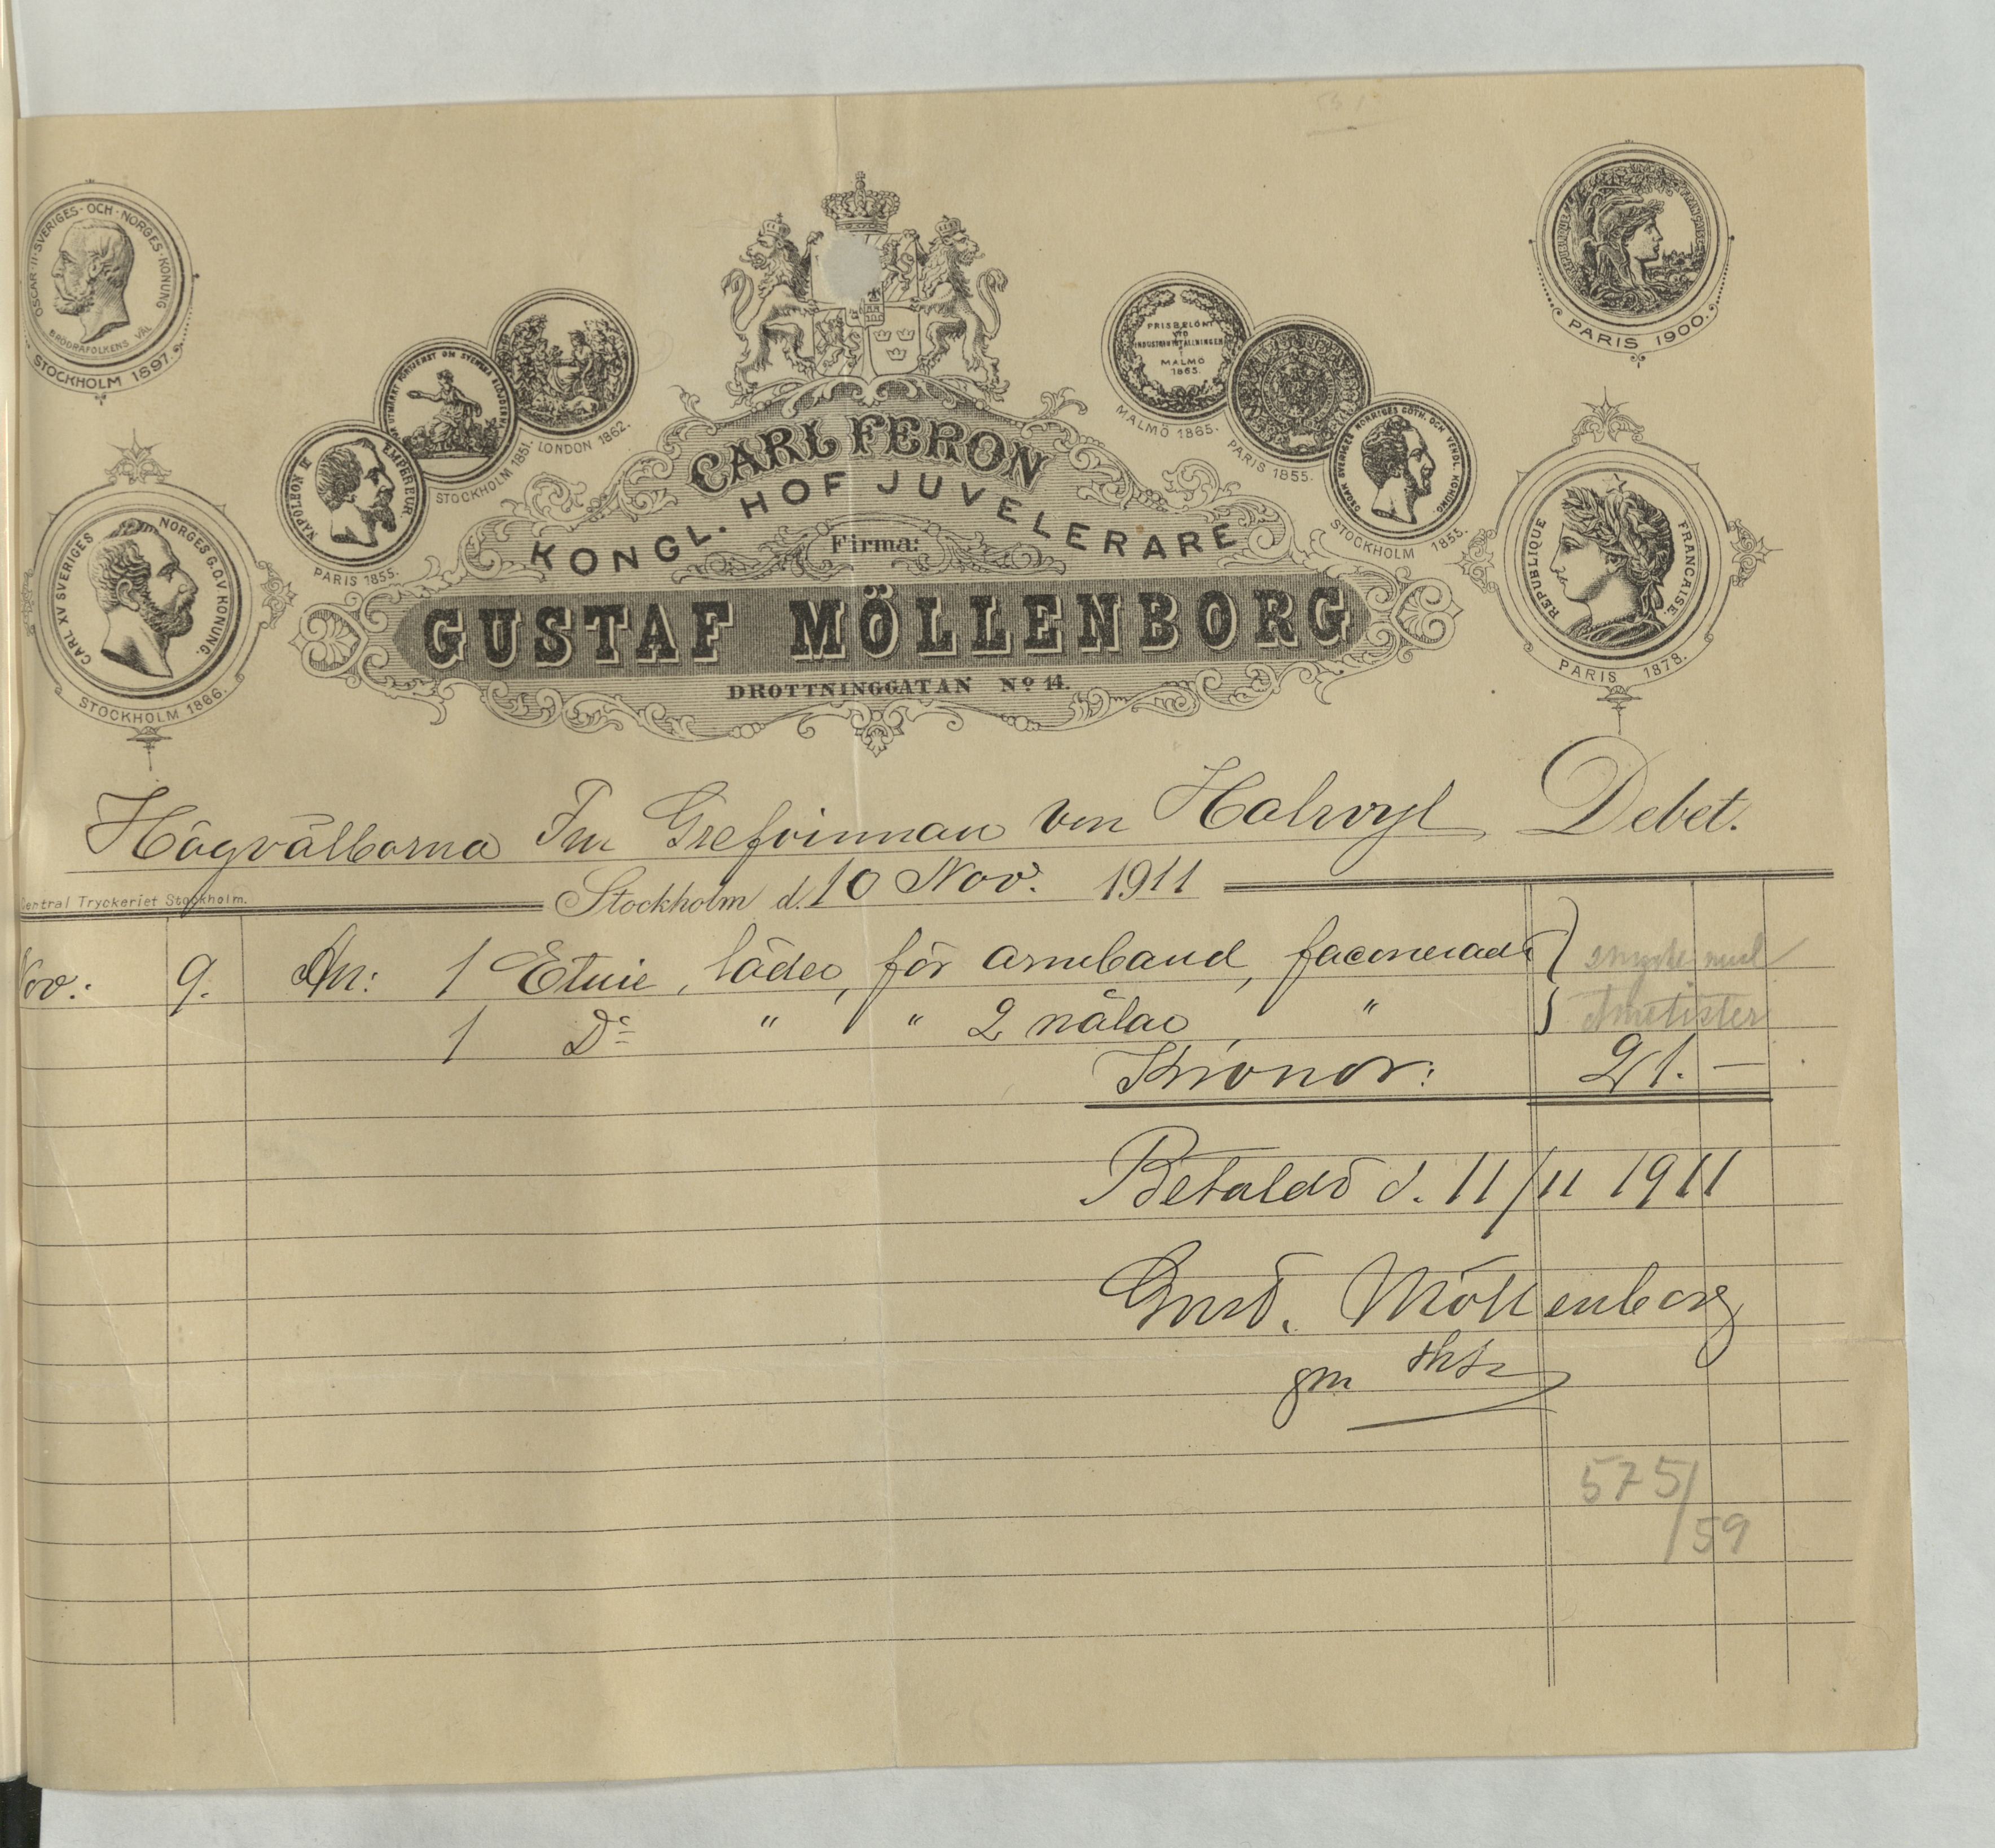 OSCAR·II·SVERIGES·OCH·NORGES·KONUNG
BRÖDRAFOLKENS VÄL
STOCKHOLM 1897.
CARL XV SVERIGES NORGES G.O.V KONUNG.
STOCKHOLM 1866.
NAPOLEON III EMPEREUR.
PARIS 1855.
STOCKHOLM 1851.
LONDON 1862.
PRISBELÖNT
VID
INDUSTRIUTSTÄLLNINGEN
I
MALMÖ
1865.
MALMÖ 1865.
PARIS 1855.
OSCAR SVERIGES NORRIGES GÖTH. OCH VENDL. KONUNG.
STOCKHOLM 1855.
REPUBLIQUE FRANÇAISE
PARIS 1900.
REPUBLIQUE FRANCAISE.
PARIS 1878.
CARL FERON
KONGL. HOF JUVELERARE
Firma:
GUSTAF MÖLLENBORG
DROTTNINGGATAN No 14.
Högvälborna Fru Grefvinnan von Halwyl Debet.
Stockholm d. 10 Nov. 1911
Central Tryckeriet Stockholm.
Nov.: 9. An: 1 Etuie, läder, för armband, faconerade
1 Do " " 2 nålar " Ametister
Kronor: 21. —
Betaldt d. 11/11 1911
Gust. Möllenborg
gm
575/59